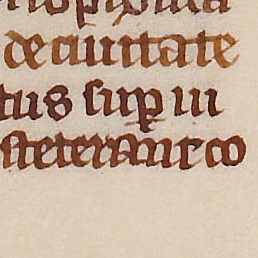 de ciuitate
tus sup ui
steterant co